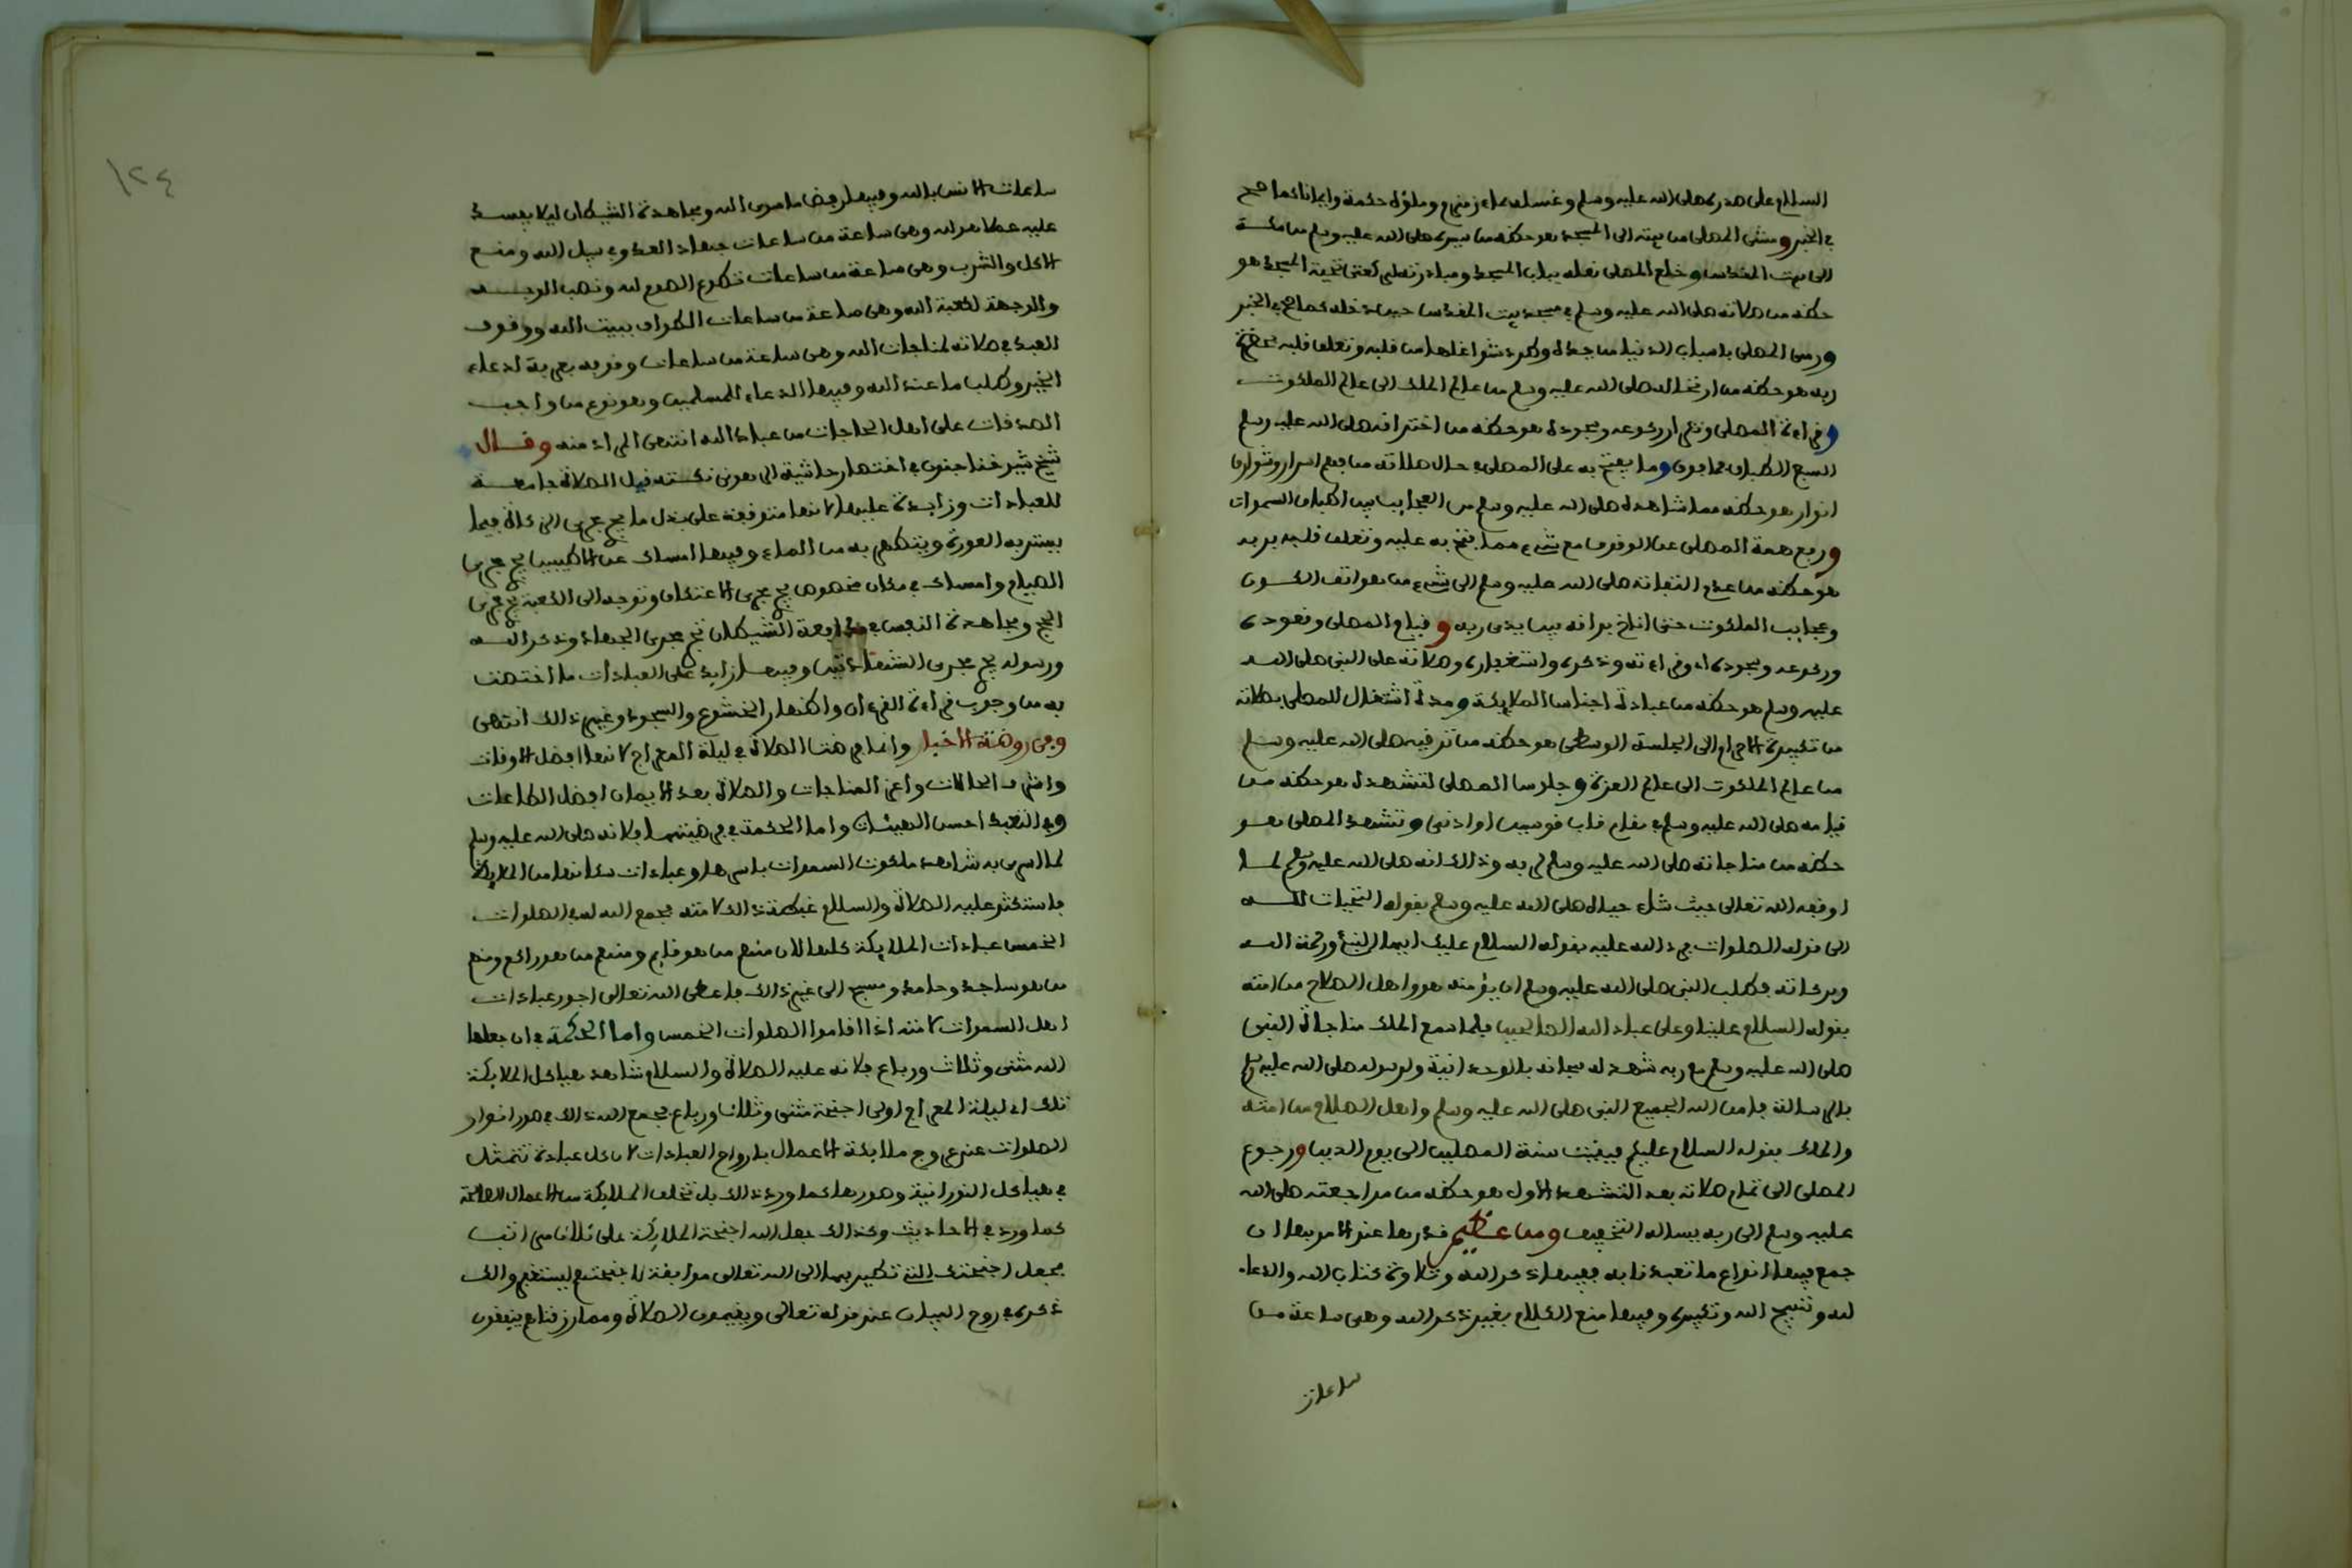 السلام على صدره صلى الله عليه وسلم وغسله بماء زمزم وملؤه حكمة وايمانا كما صح
في الخبر ومشى المصلى من بيته الى المسجد هو حكمة من سيره صلى الله عليه وسلم من مكة
الى بيت المقدس وخلع المصلى نعله بباب المسجد ومبادرته لركعتى تحية المسجد هو
حكمة من صلاته صلى الله عليه وسلم في مسجد بيت المقدس حين دخله كما صح في الخبر
ورمى المصلى باسباب الدنيا من يده وطرد شواغلها من قلبه وتعلق قلبه بحضرة
ربه هو حكمة من ارتقائه صلى الله عليه وسلم من عالم الملك الى عالم الملكوت
وقراءة المصلى وتكرار ركوعه وسجوده هو حكمة من اختراقه صلى الله عليه وسلم
السبع الطباق فما فوق وما يفتح به على المصلى في حال صلاته من فهم اسرار وشوارق
انوار هو حكمة مما شاهده صلى الله عليه وسلم من العجايب بين اطباق السموات
ورفع همة المصلى عن الوقوف مع شيء مما يفتح به عليه وتعلق قلبه بربه
هو حكمة من عدم التفاته صلى الله عليه وسلم الى شيء من هواتف الكون
وعجايب الملكوت حتى اناخ براقه بين يدى ربه وقيام المصلى وقعوده
وركوعه وسجوده وقراءته وذكره واستغفاره وصلاته على النبى صلى الله
عليه وسلم هو حكمة من عبادة اجناس الملايكة ومدة اشتغال المصلى بصلاته
من تكبيرة الاحرام الى الجلسة الوسطى هو حكمة من ترقيه صلى الله عليه وسلم
من عالم الملكوت الى عالم العزة وجلوس المصلى لتشهده هو حكمة من
قيامه صلى الله عليه وسلم في مقام قاب قوسين او ادنى وتشهد المصلى هو
حكمة من مناجاته صلى الله عليه وسلم لربه وذالك انه صلى الله عليه وسلم لما
اوقفه الله تعالى حيث شاء حياه صلى الله عليه وسلم بقوله التحيات لله
الى قوله الصلوات فرد الله عليه بقوله السلام عليك ايها النبئ ورحمة الله
وبركاته فطلب النبى صلى الله عليه وسلم ان يؤمنه هو واهل الصلاح من امته
بقوله السلام علينا وعلى عباد الله الصالحين فلما سمع الملك مناجاة النبى
صلى الله عليه وسلم مع ربه شهد له سبحانه بالوحدانية ولرسوله صلى الله عليه وسلم
بالرسالة فامن الله الجميع النبى صلى الله عليه وسلم واهل الصلاح من امته
والملك بقوله السلام عليكم فبقيت سنة المصلين الى يوم الدين ورجوع
المصلى الى تمام صلاته بعد التشهد الاول هو حكمة من مراجعته صلى الله
عليه وسلم الى ربه يساله التخفيف ومن عظيم قدرها عند الامر بها ان
جمع فيها انواع ما تعبدنا به ففيها ذكر الله وتلاوة كتاب الله والدعاء
لله وتسبيح الله وتكبيره وفيها منع الكلام بغير ذكر الله وهى ساعة من
ساعات
١٢٤
ساعات الانس بالله وفيها رفض ما سوى الله ومجاهدة الشيطان ليلا يفسد
عليه عملا هو لله وهى ساعة من ساعات جهاد العدو في سبيل الله ومنع
الاكل والشرب وهى ساعة من ساعات تطوع الصوم لله ونصب الوجه
والوجهة لكعبة الله وهى ساعة من ساعات الطواف ببيت الله ووقوف
العبد في صلاته لمناجات الله وهى ساعة من ساعات وقوفه بعرفة لدعاء
الخير وطلب ما عند الله وفيها الدعاء للمسلمين وهو نوع من واجب
الصدقات على اهل الحاجات من عباد الله انتهى المراد منه وقال
شيخ شيوخنا جنون في اختصار حاشية الرهونى نكتة قيل الصلاة جامعة
للعبادات وزايدة عليها لانها متوقفة على بذل مال يجرى مجرى الزكاة فيما
يستر به العورة ويتطهر به من الماء وفيها امساك عن الاطيبين يجرى مجرى
الصيام وامساك في مكان مخصوص يجرى مجرى الاعتكاف وتوجه الى الكعبة يجرى مجرى
الحج ومجاهدة النفس في مدافعة الشيطان تجرى مجرى الجهاد وذكر الله
ورسوله يجرى مجرى الشهادتين وفيها زايد على العبادات ما اختصت
به من وجوب قراءة القرءان واظهار الخشوع والسجود وغير ذالك انتهى
وفى روضة الاخبار وانما فرضت الصلاة في ليلة المعراج لانها افضل الاوقات
واشرف الحالات واعز المناجات والصلاة بعد الايمان افضل الطاعات
وفي التعبد احسن الهيئات واما الحكمة في فرضيتها فلانه صلى الله عليه وسلم
لما اسرى به شاهد ملكوت السموات باسرها وعبادات سكانها من الملايكة
فاستكثر عليه الصلاة والسلام غبطة ذالك لامته فجمع الله له في الصلوات
الخمس عبادات الملايكة كلها لان منهم من هو قايم ومنهم من هو راكع ومنهم
من هو ساجد وحامد ومسبح الى غير ذالك فاعطى الله تعالى اجور عبادات
اهل السموات لامته اذا اقاموا الصلوات الخمس واما الحكمة في ان جعلها
الله مثنى وثلاث ورباع فلانه عليه الصلاة والسلام شاهد هياكل الملايكة
تلك الليلة المعراج اولى اجنحة مثنى وثلاث ورباع فجمع الله ذالك في صور انوار
الصلوات عند عروج ملايكة الاعمال بارواح العبادات لان كل عبادة تتمثل
في هياكل النورانية وصورها كما ورد ذالك بل تخلق الملايكة من الاعمال الصالحة
كما ورد في الاحاديث وكذالك جعل الله اجنحة الملايكة على ثلاث مراتب
فجعل اجنحتك التى تطير بها الى الله تعالى موافقة لاجنحتهم ليستغفروا لك
ذكره في روح البيان عند قوله تعالى ويقيمون الصلاة ومما رزقناهم ينفقون